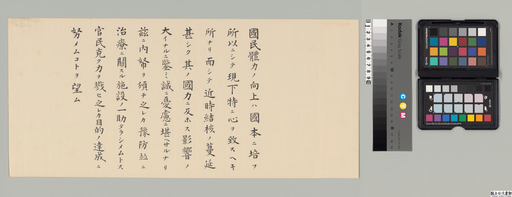 國民體力ノ向上ハ國本ニ培フ
所以ニシテ現下特ニ心ヲ致スヘキ
所ナリ而シテ近時結核ノ蔓延
甚シク其ノ國力ニ及ホス影響ノ
大イナルニ鑒ミ誠ニ憂慮ニ堪ヘサルナリ
茲ニ內帑ヲ頒チ之レカ豫防並ニ
治療ニ關スル施設ノ一助タラシメムトス
官民克ク力ヲ戮セ之レカ目的ノ達成ニ
努メムコトヲ望ム
Kodak